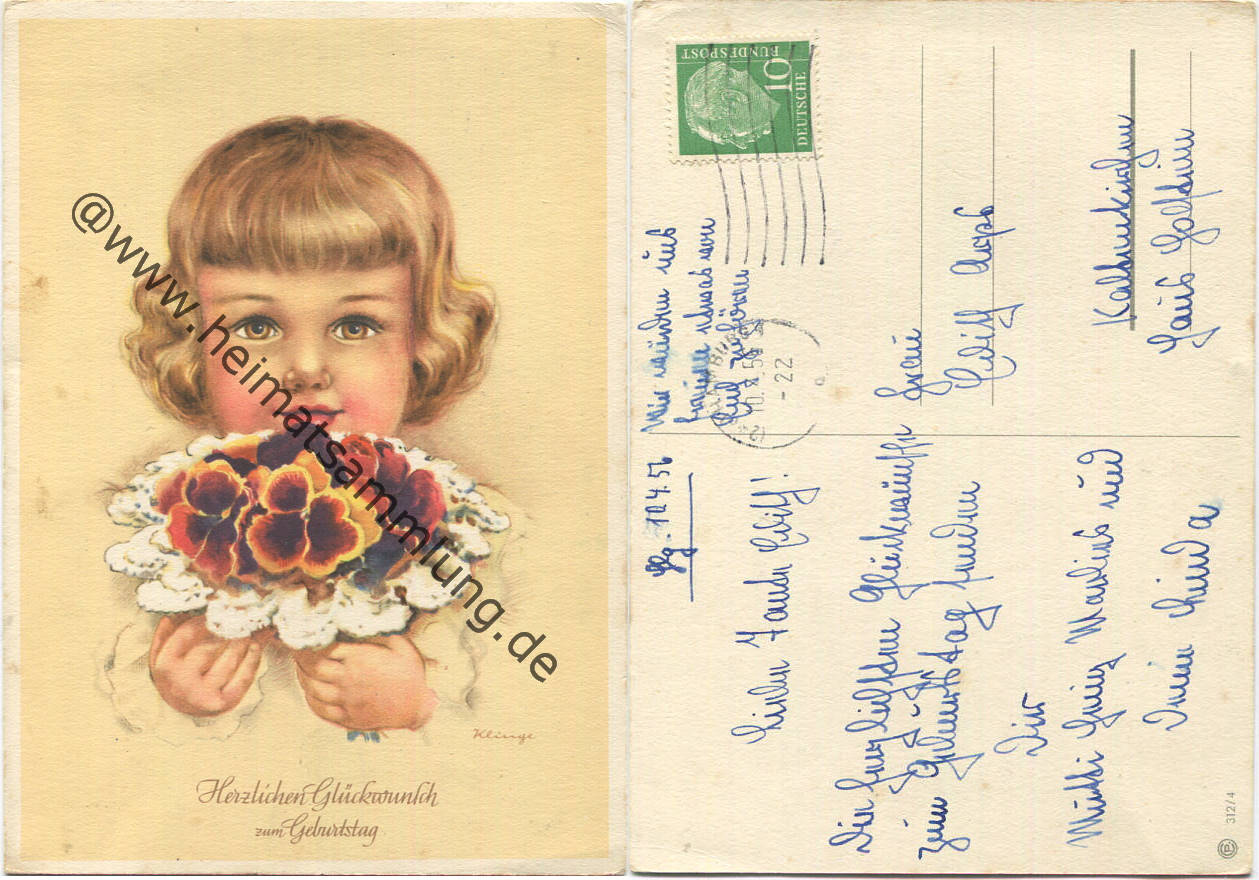 @www.heimatsammlung.de
Klinge
Herzlichen Glückwunsch
zum Geburtstag
DEUTSCHE
BUNDESPOST
10
Wir würden uns
freuen etwas von
Euch zu hören
Hbg. 10.4.56
Liebe Tante Edith!
Die herzlichsten Glückwünsche
zum Geburtstag senden
Dir
Mutti Heinz Marlies und
Deine Linda
Frau
Edith
Kaltenkirchen
Haus
312/4